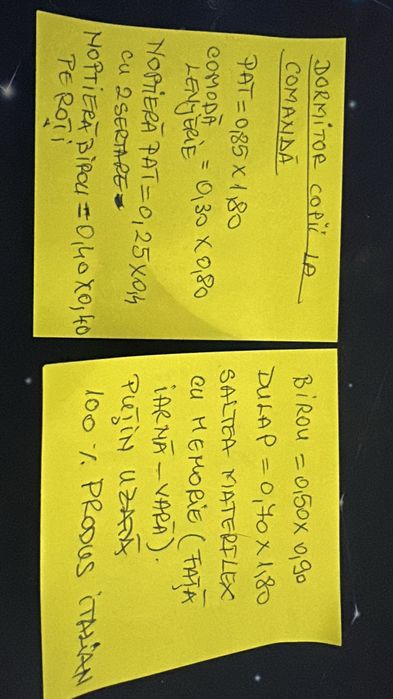 DORMITOR COPII LA
COMANDĂ
PAT = 0,85 x 1,80
COMODĂ
LENJERIE = 0,30 x 0,80
NOPTIERĂ PAT = 0,25 x 0,4
CU 2 SERTARE
NOPTIERĂ BIROU = 0,40 x 0,40
PE ROȚI
BIROU = 0,50 x 0,90
DULAP = 0,70 x 1,80
SALTEA MATERFLEX
CU MEMORIE (FAȚĂ
IARNĂ - VARĂ).
PUȚIN UZATĂ
100 % PRODUS ITALIAN